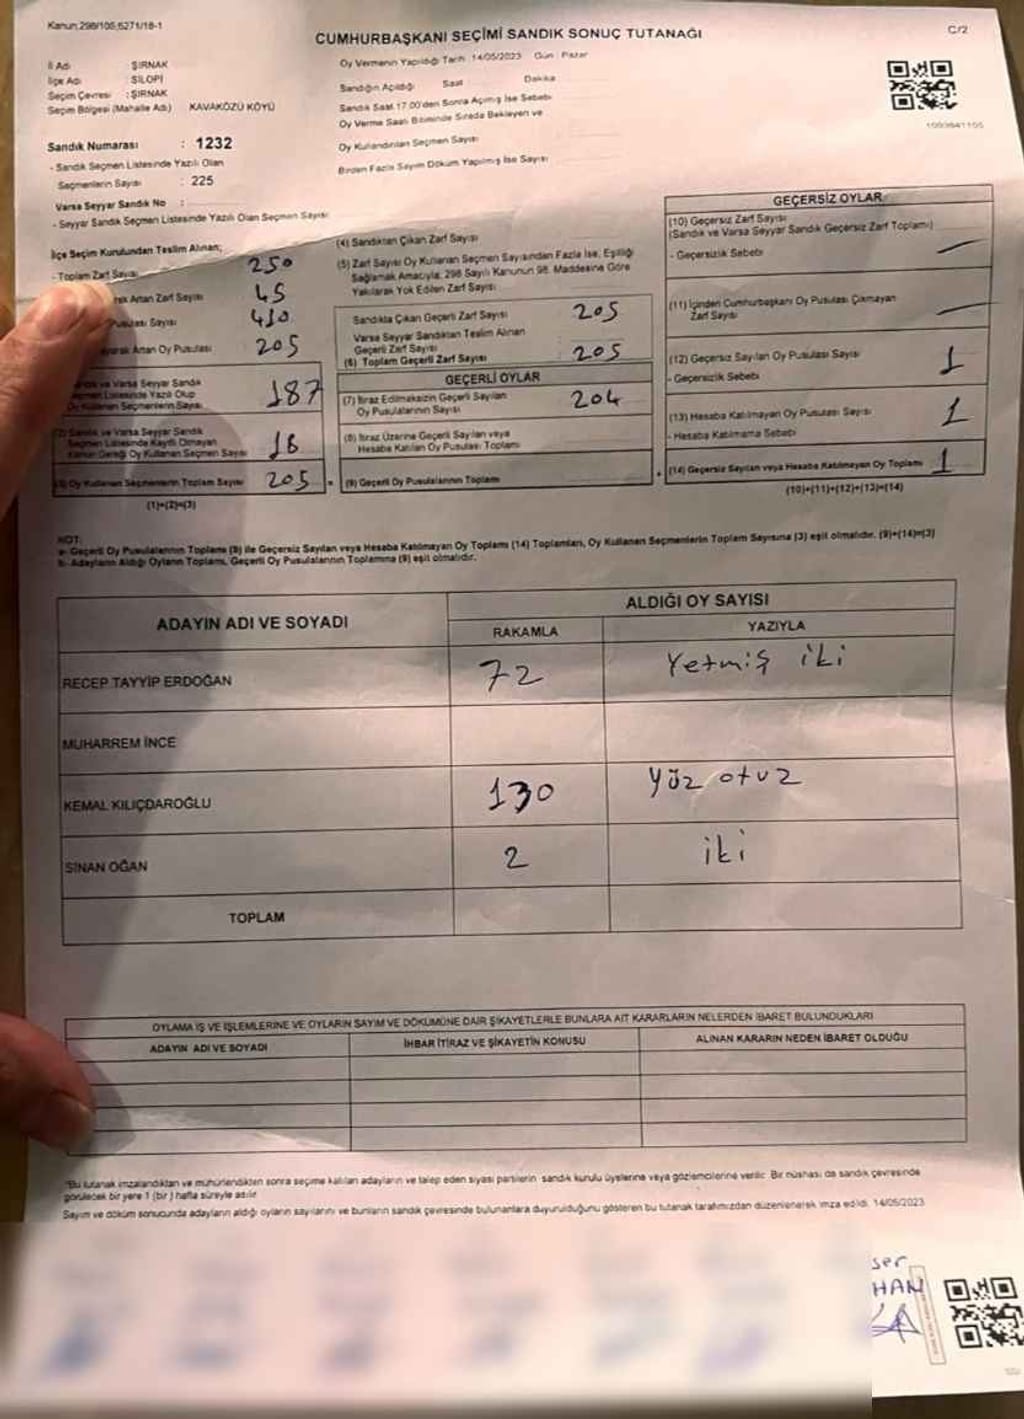 Kanun:298/105;6271/18-1
CUMHURBAŞKANI SEÇİMİ SANDIK SONUÇ TUTANAĞI
C/2
İl Adı : ŞIRNAK
İlçe Adı : SİLOPİ
Seçim Çevresi : ŞIRNAK
Seçim Bölgesi (Mahalle Adı) KAVAKÖZÜ KÖYÜ
Sandık Numarası : 1232
- Sandık Seçmen Listesinde Yazılı Olan
Seçmenlerin Sayısı : 225
Varsa Seyyar Sandık No :
- Seyyar Sandık Seçmen Listesinde Yazılı Olan Seçmen Sayısı
Oy Vermenin Yapıldığı Tarih: 14/05/2023 Gün : Pazar
Sandığın Açıldığı Saat Dakika
Sandık Saat 17.00'den Sonra Açılmış İse Sebebi
Oy Verme Saati Bitiminde Sırada Bekleyen ve
Oy Kullandırılan Seçmen Sayısı
Birden Fazla Sayım Döküm Yapılmış İse Sayısı
İlçe Seçim Kurulundan Teslim Alınan;
- Toplam Zarf Sayısı 250
Artan Zarf Sayısı 45
Pusulası Sayısı 410
Artan Oy Pusulası 205
ve Varsa Seyyar Sandık
Listesinde Yazılı Olup
Oy Kullanan Seçmenlerin Sayısı 187
(2) Sandık ve Varsa Seyyar Sandık
Seçmen Listesinde Kayıtlı Olmayan
Kanun Gereği Oy Kullanan Seçmen Sayısı 18
(3) Oy Kullanan Seçmenlerin Toplam Sayısı 205 =
(1)+(2)=(3)
(4) Sandıktan Çıkan Zarf Sayısı
(5) Zarf Sayısı Oy Kullanan Seçmen Sayısından Fazla İse, Eşitliği
Sağlamak Amacıyla; 298 Sayılı Kanunun 98. Maddesine Göre
Yakılarak Yok Edilen Zarf Sayısı
Sandıkta Çıkan Geçerli Zarf Sayısı 205
Varsa Seyyar Sandıktan Teslim Alınan
Geçerli Zarf Sayısı
(6) Toplam Geçerli Zarf Sayısı : 205
GEÇERLİ OYLAR
(7) İtiraz Edilmeksizin Geçerli Sayılan
Oy Pusulalarının Sayısı 204
(8) İtiraz Üzerine Geçerli Sayılan veya
Hesaba Katılan Oy Pusulası Toplamı
(9) Geçerli Oy Pusulalarının Toplamı
GEÇERSİZ OYLAR
(10) Geçersiz Zarf Sayısı
(Sandık ve Varsa Seyyar Sandık Geçersiz Zarf Toplamı)
- Geçersizlik Sebebi —
(11) İçinden Cumhurbaşkanı Oy Pusulası Çıkmayan
Zarf Sayısı —
(12) Geçersiz Sayılan Oy Pusulası Sayısı 1
- Geçersizlik Sebebi
(13) Hesaba Katılmayan Oy Pusulası Sayısı 1
- Hesaba Katılmama Sebebi
(14) Geçersiz Sayılan veya Hesaba Katılmayan Oy Toplamı 1
(10)+(11)+(12)+(13)=(14)
NOT:
a- Geçerli Oy Pusulalarının Toplamı (9) ile Geçersiz Sayılan veya Hesaba Katılmayan Oy Toplamı (14) Toplamları, Oy Kullanan Seçmenlerin Toplam Sayısına (3) eşit olmalıdır. (9)+(14)=(3)
b- Adayların Aldığı Oyların Toplamı, Geçerli Oy Pusulalarının Toplamına (9) eşit olmalıdır.
ADAYIN ADI VE SOYADI
ALDIĞI OY SAYISI
RAKAMLA YAZIYLA
RECEP TAYYİP ERDOĞAN 72 Yetmiş iki
MUHARREM İNCE
KEMAL KILIÇDAROĞLU 130 Yüz otuz
SİNAN OĞAN 2 iki
TOPLAM
OYLAMA İŞ VE İŞLEMLERİNE VE OYLARIN SAYIM VE DÖKÜMÜNE DAİR ŞİKAYETLERLE BUNLARA AİT KARARLARIN NELERDEN İBARET BULUNDUKLARI
ADAYIN ADI VE SOYADI İHBAR İTİRAZ VE ŞİKAYETİN KONUSU ALINAN KARARIN NEDEN İBARET OLDUĞU
"Bu tutanak imzalandıktan ve mühürlendikten sonra seçime katılan adayların ve talep eden siyasi partilerin sandık kurulu üyelerine veya gözlemcilerine verilir. Bir nüshası da sandık çevresinde
görülecek bir yere 1 (bir) hafta süreyle asılır
Sayım ve döküm sonucunda adayların aldığı oyların sayılarını ve bunların sandık çevresinde bulunanlara duyurulduğunu gösteren bu tutanak tarafımızdan düzenlenerek imza edildi. 14/05/2023
ser
HAN